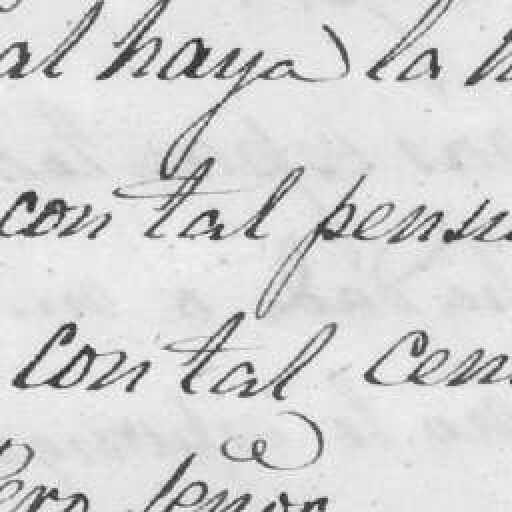 al haya la
con tal pensu
con tal cen
Pero Señor